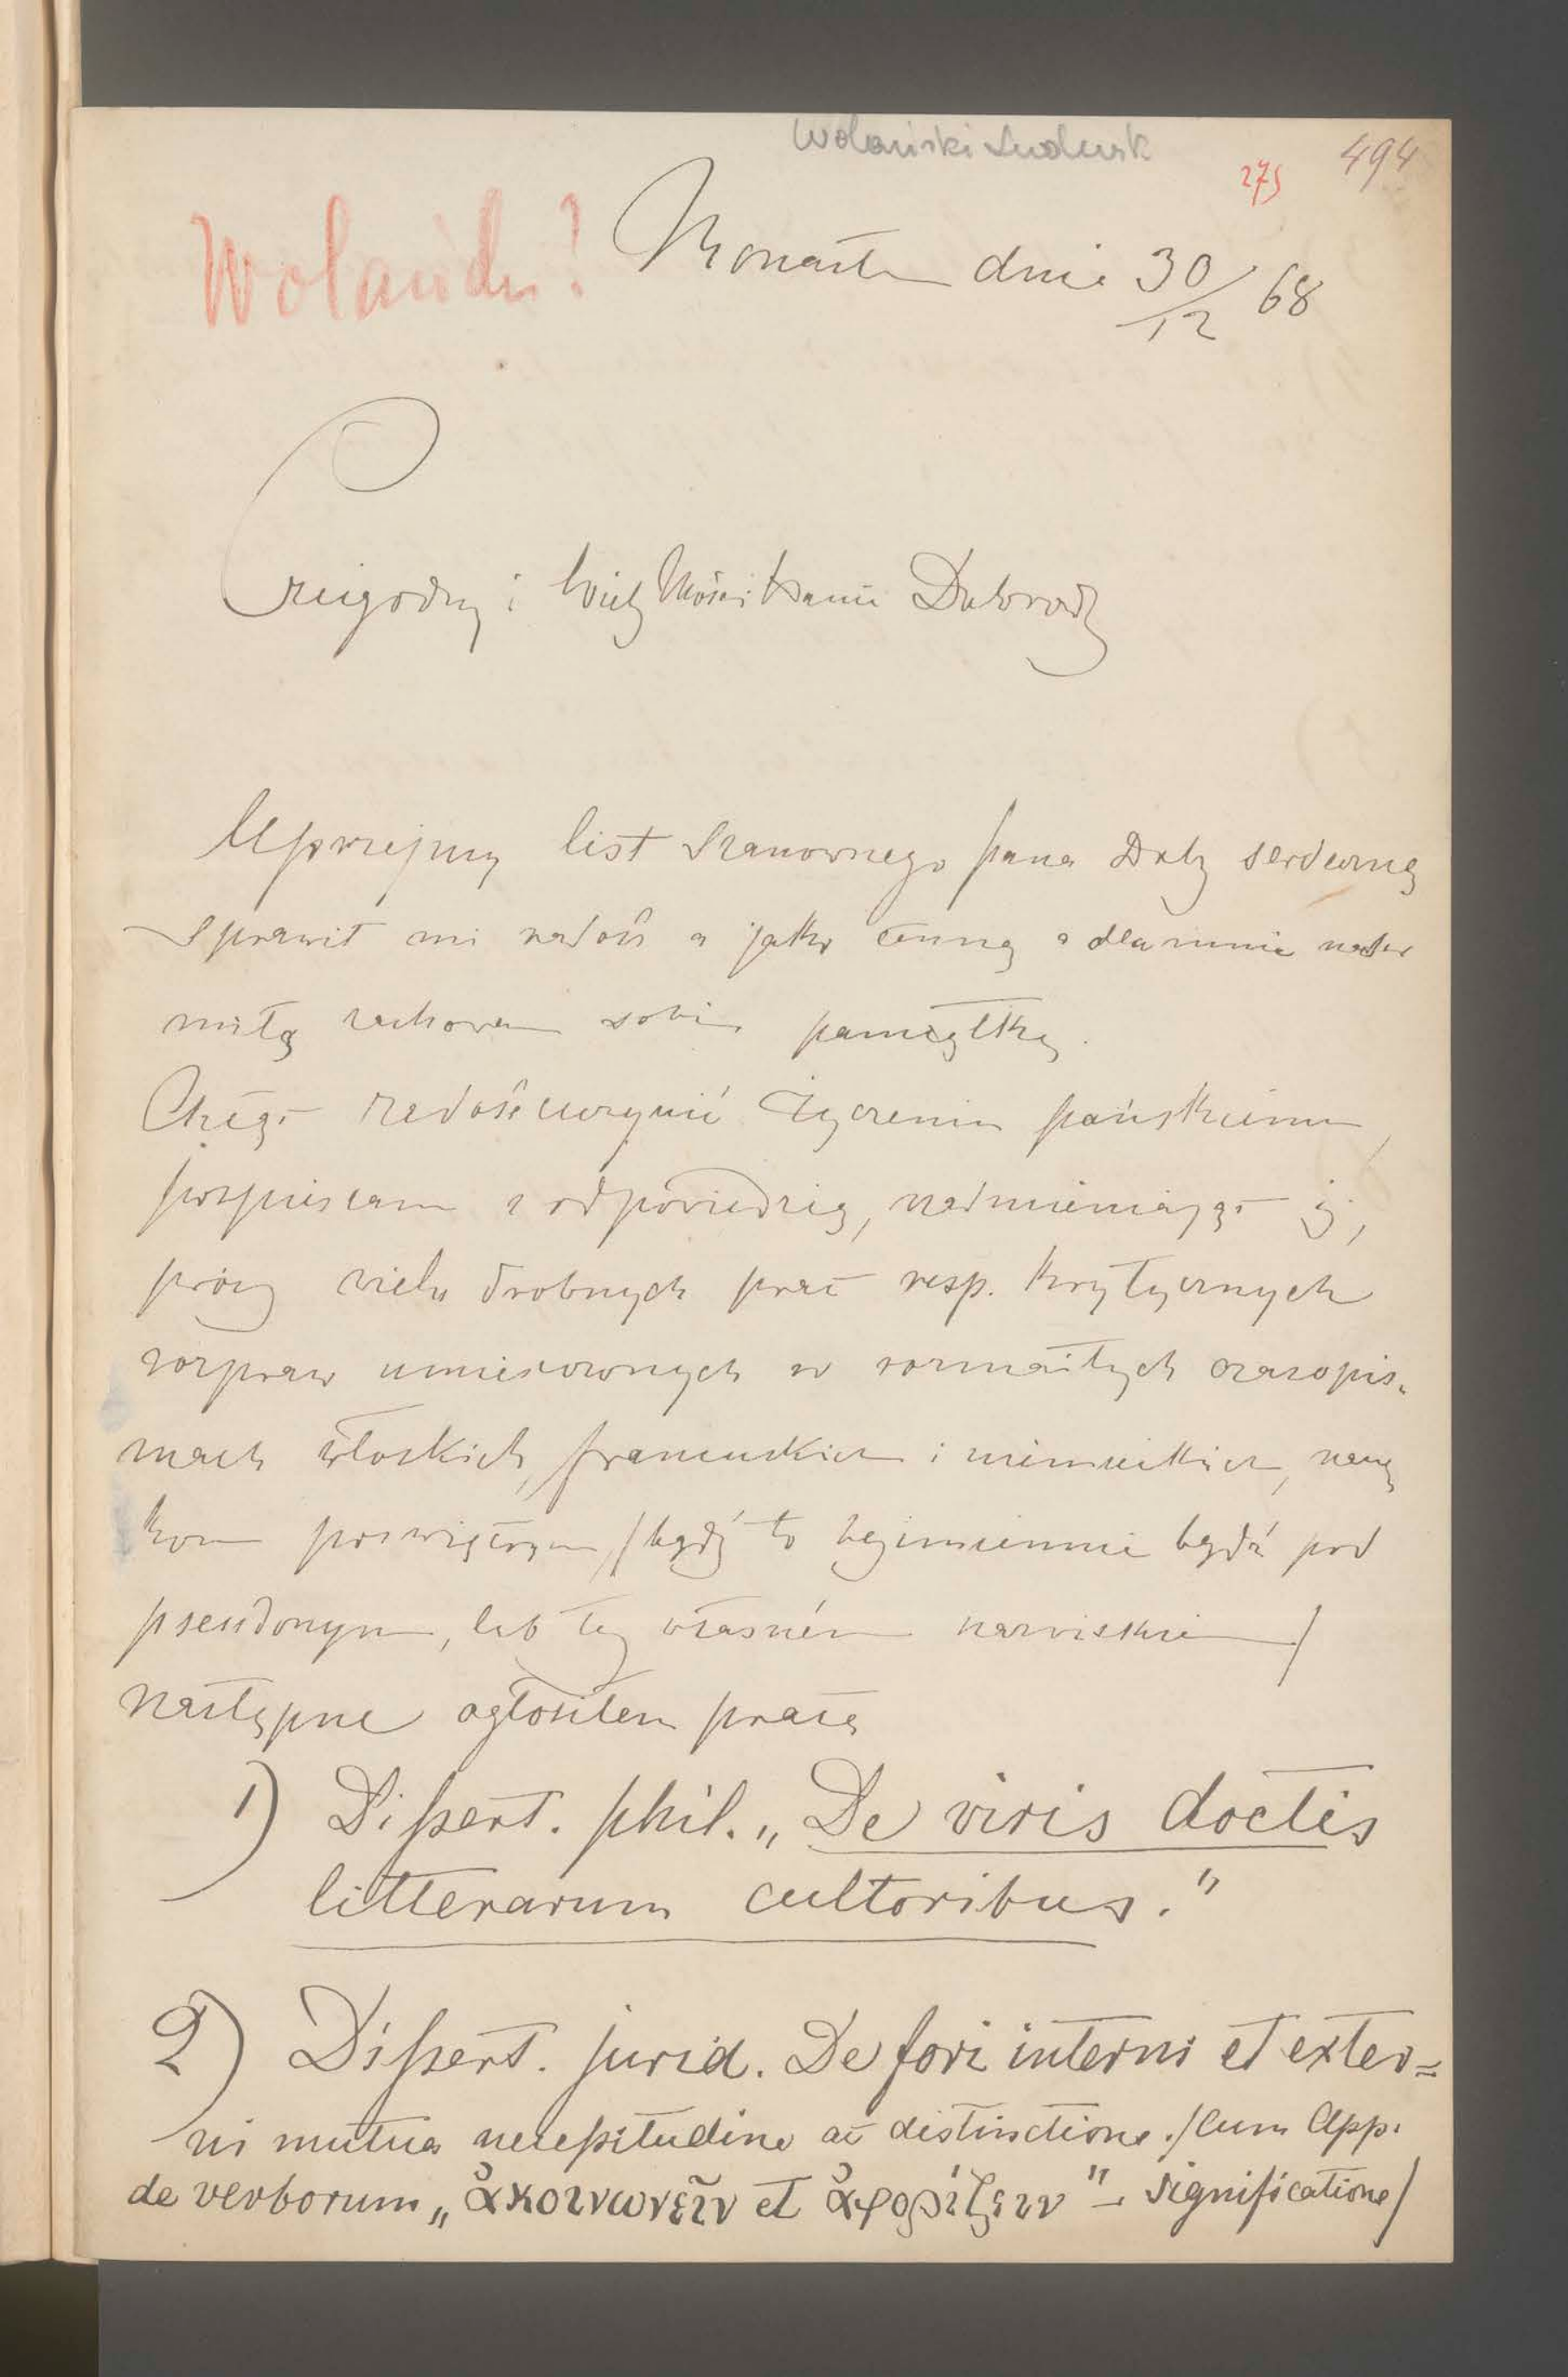 Wolański Ludwik
275 494
Wolański!
Monaster dnia 30/12 68
Czcigodny i Wielmości Panie Dobrodz
Uprzejmy list Szanownego pana Dobr serdeczną
sprawił mi radość a jako cenną a dla mnie nader
miłą zachowam sobie pamiątkę.
Chcąc zadość uczynić życzeniu pańskiemu,
pospieszam z odpowiedzią, nadmieniając iż,
prócz wielu drobnych prac resp. krytycznych
rozpraw umieszczonych w rozmaitych czasopis-
mach włoskich, francuskich i niemieckich, nau
kom poświęconym /bądź to bezimiennie bądź pod
pseudonym, lub też własném nazwiskiem/
następne ogłosiłem prace
1) Dissert. phil. „De viris doctis
litterarum cultoribus."
2) Dissert. jurid. De fori interni et exter=
ni mutua necessitudine ac distinctione. /Cum App.
de verborum „ἀκοινωνεῖν et ἀφορίζειν" – significatione/